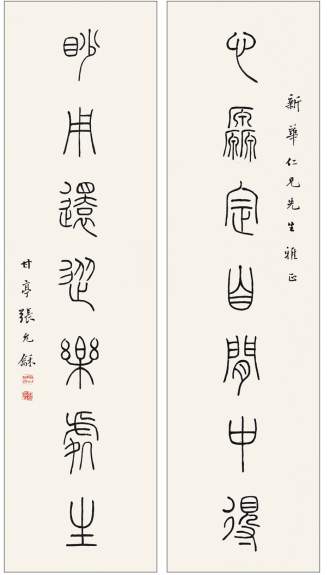 新華仁兄先生雅正
心厵定自閒中得
眇用還從樂處生
甘亭張允龢